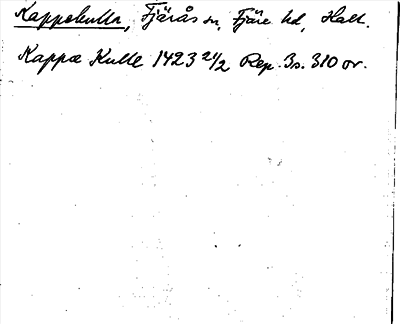 Kappekulla, Fjärås sn, Fjäre hd, Hall.
Kappæ Kulle 1423 21/2 Rep. 3s. 310 or.